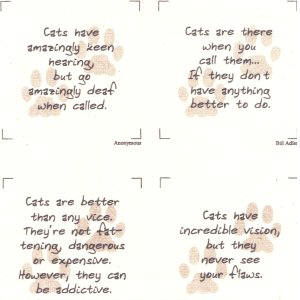 Cats have
amazingly keen
hearing,
but go
amazingly deaf
when called.
Anonymous
Cats are there
when you
call them...
If they don't
have anything
better to do.
Bill Adler
Cats are better
than any vice.
They're not fat-
tening, dangerous
or expensive.
However, they can
be addictive.
Cats have
incredible vision,
but they
never see
your flaws.